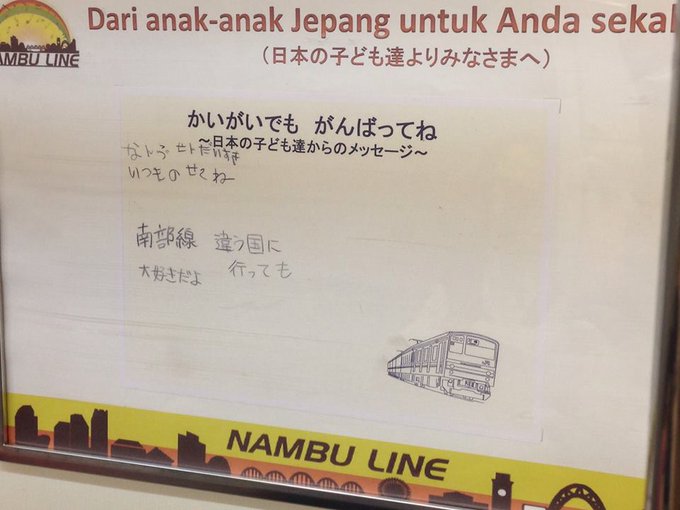 Dari anak-anak Jepang untuk Anda sekal
(日本の子ども達よりみなさまへ)
AMBU LINE
かいがいでも がんばってね
~日本の子ども達からのメッセージ~
だいすき
いつもの
南部線 違う国に
大好きだよ 行っても
NAMBU LINE